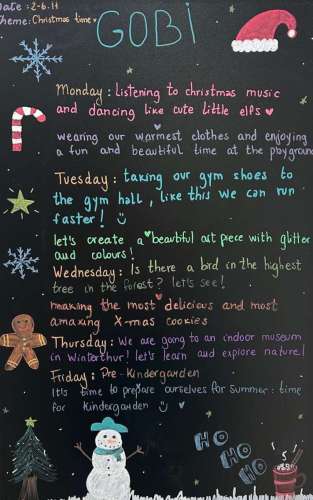 Date : 2-6.11
Theme: Christmas time
GOBI
Monday : listening to christmas music
and dancing like cute little elfs
wearing our warmest clothes and enjoying
a fun and beautiful time at the playground
Tuesday : taking our gym shoes to
the gym hall, like this we can run
faster!
let's create a beautiful art piece with glitter
and colours!
Wednesday: Is there a bird in the highest
tree in the forest? let's see!
making the most delicious and most
amaking X-mas cookies
Thursday: We are going to an indoor museum
in Winterthur! let's learn and explore nature!
Friday: Pre-Kindergarden
It's time to prepare ourselves for Summer: time
for Kindergarden
HO
HO
HO